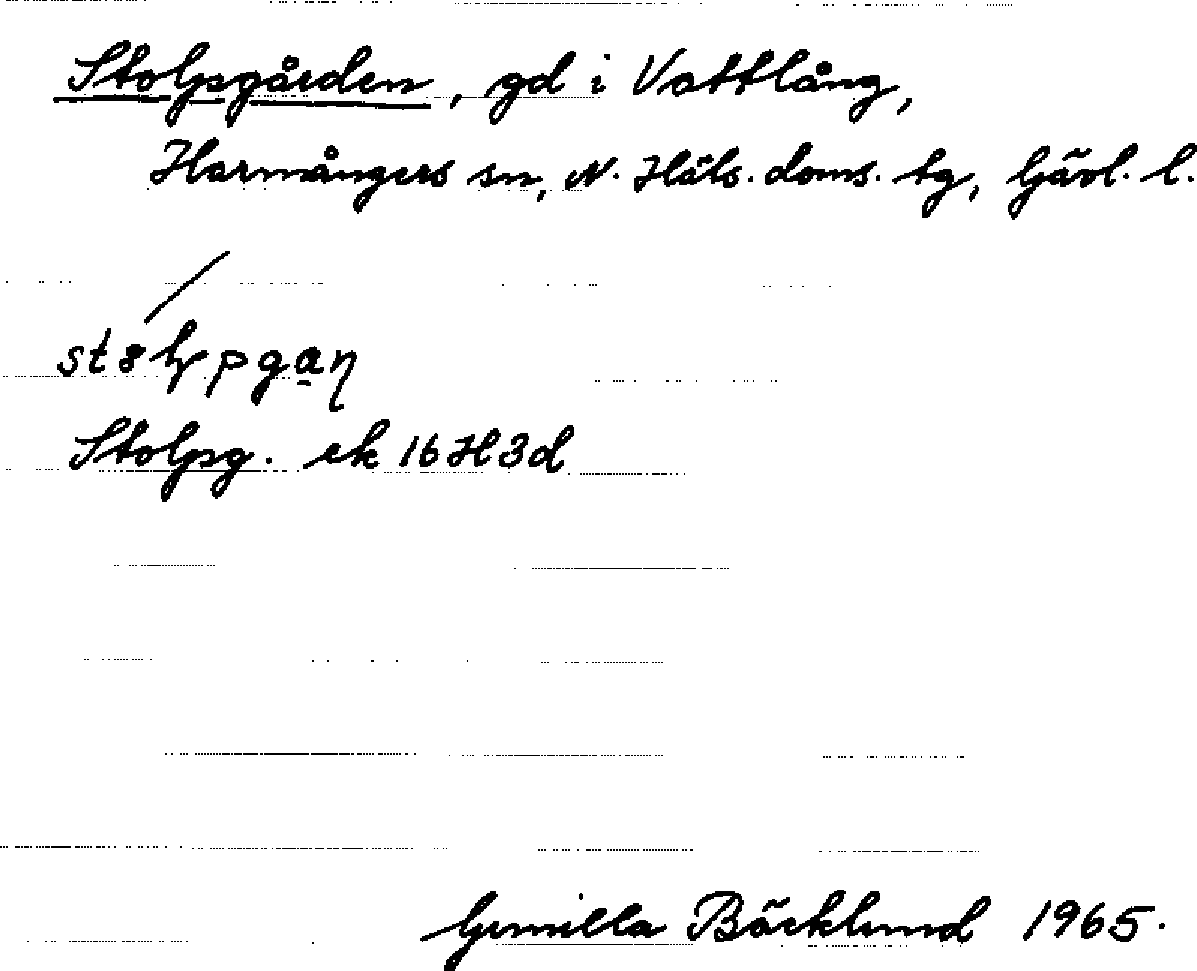 Stolpsgården, gd i Vattlång,
Harmångers sn, N. Häls. doms. tg, Gävl. l.
Stolpsg. ek 16H3d
Gunilla Bäcklund 1965.